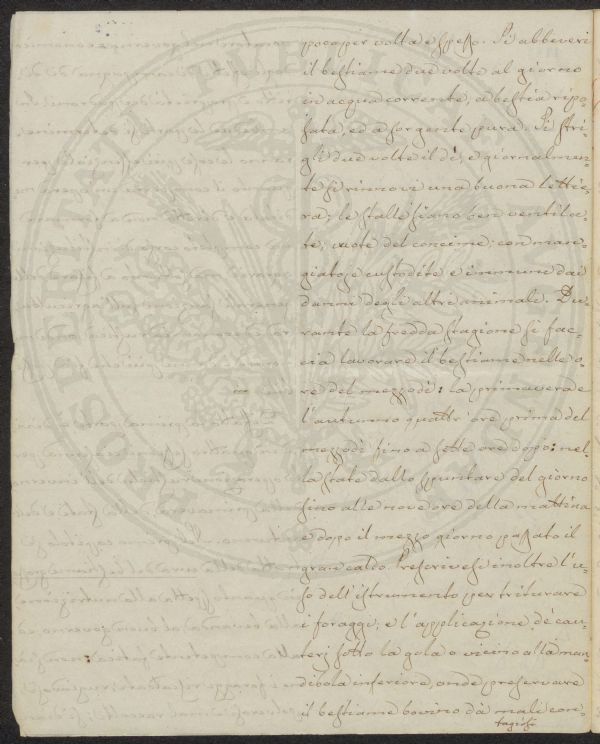 poca per volta e spesso. Si abbeveri
il bestiame due volte al giorno
in acqua corrente, a bestia ripo-
sata, ed a sorgente pura. Si stri-
gli due volte il dì, e giornalmen-
te si rinnovi una buona lettie-
ra; le stalle siano ben ventila-
te, vuote del concime; con man-
giatoje custodite e immuni dai
danni degli altri animali. Du-
rante la fredda stagione si fac-
cia lavorare il bestiame nelle o-
re del mezzodì: la primavera e
l'autunno quattr'ore prima del
mezzodì fino a sette ore dopo: nel-
la state dallo spuntare del giorno
fino alle nove ore della mattina
e dopo il mezzo giorno passato il
gran caldo. Prescrivesi inoltre l'u-
so dell'istrumento per triturare
i foraggi, e l'applicazione de' cau-
terj sotto la gola o vicino alla man-
dibola inferiore, onde preservare
il bestiame bovino da mali con-
tagiosi